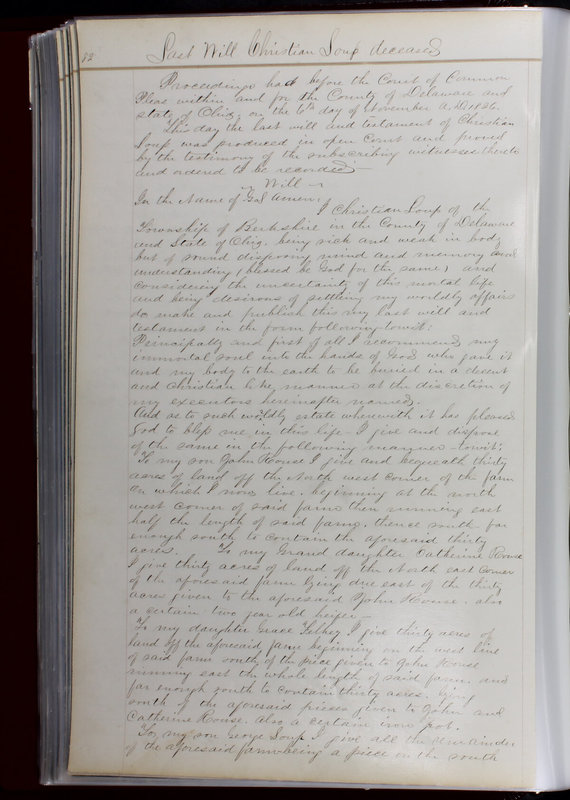 82 Last Will Christian Soup deceased
Proceedings had before the Court of Common
Pleas within and for the County of Delaware and
State of Ohio, on the 6th day of November A.D. 1826.
This day the last will and testament of Christian
Soup was produced in open Court and proved
by the testimony of the subscribing witnesses thereto
and ordered to be recorded
Will
In the Name of God Amen:
I Christian Soup of the
Township of Berkshire in the County of Delaware
and State of Ohio. being sick and weak in body
but of sound disposing mind and memory and
understanding (blessed be God for the same) and
considering the uncertainty of this mortal life
and being desirous of settling my worldly affairs
do make and publish this my last will and
testament in the form following towit:
Principally and first of all I recommend my
immortal soul into the hands of God who gave it
and my body to the earth to be buried in a decent
and christian like manner at the discretion of
my executors hereinafter named.
And as to such worldly estate wherewith it has pleased
God to bless me in this life I give and dispose
of the same in the following manner towit:
To my son John House I give and bequeath thirty
acres of land off the North west corner of the farm
on which I now live. beginning at the north
west corner of said farm then running east
half the length of said farm. thence south far
enough south to contain the aforesaid thirty
acres. To my Grand daughter Catherine House
I give thirty acres of land off the North east corner
of the aforesaid farm lying due east of the thirty
acres given to the aforesaid John House. also
a certain two year old heifer
To my daughter Grace I give thirty acres of
land off the aforesaid farm beginning on the west line
of said farm south of the piece given to John House
running east the whole length of said farm. and
far enough south to contain thirty acres. lying
south of the aforesaid pieces given to John and
Catherine House. also a certain iron pot.
To my son George Soup I give all the remainder
of the aforesaid farm being a piece on the south